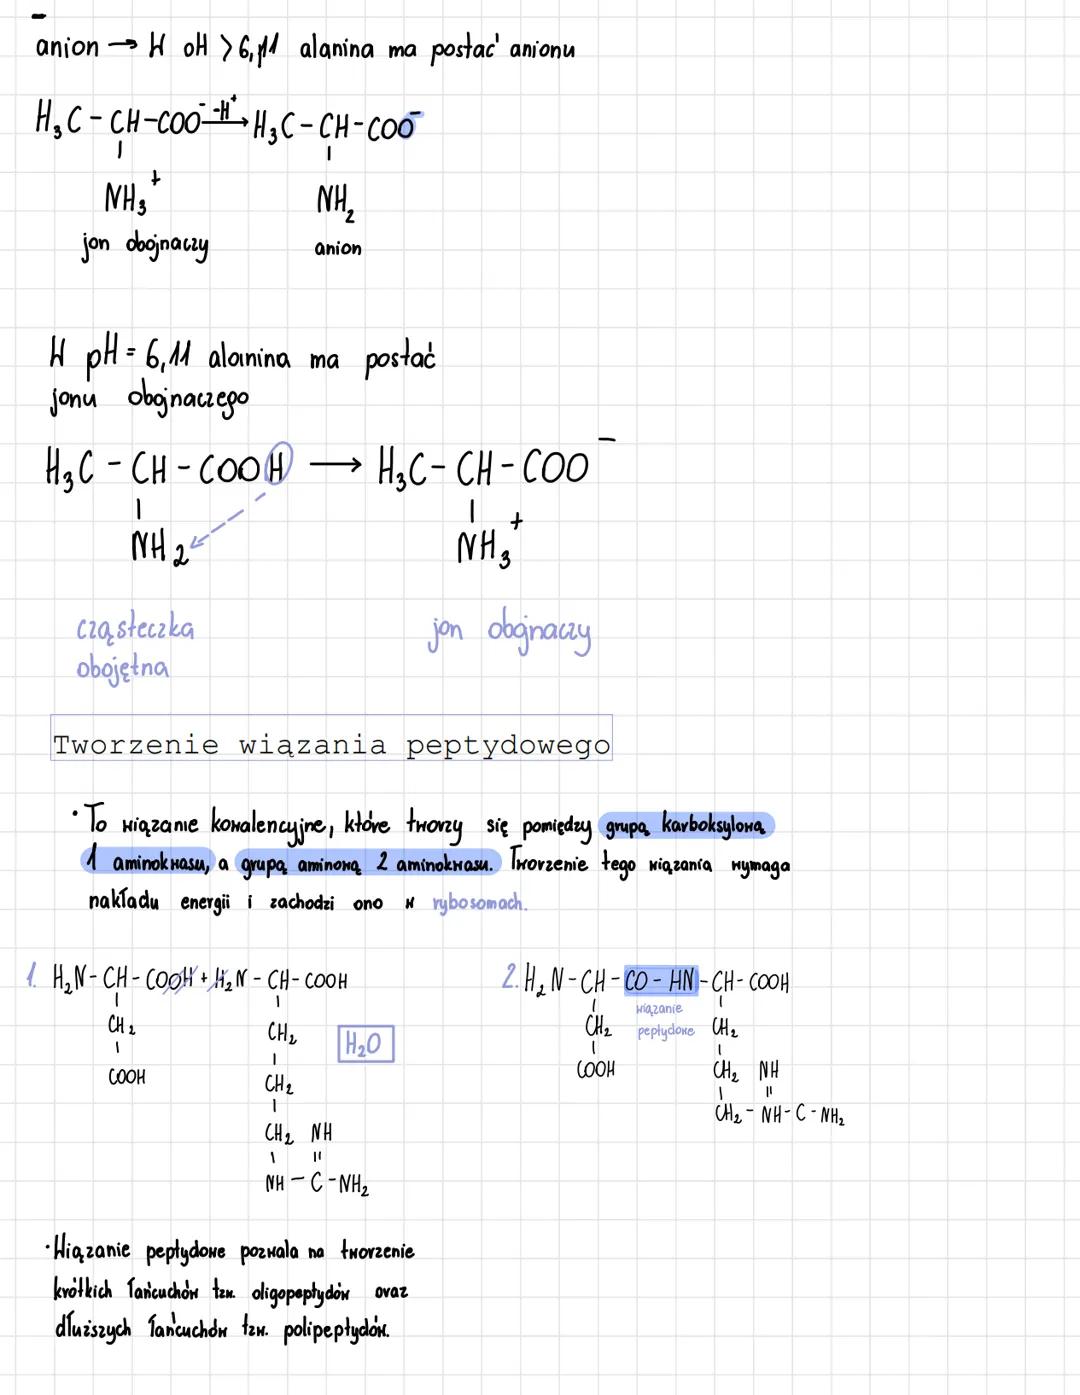 anion → W pH > 6,11 alanina ma postać anionu
H₃C - CH - COO⁻ -H⁺→ H₃C - CH - COO⁻
NH₃⁺ NH₂
jon obojnaczy anion
W pH = 6,11 alanina ma postać
jonu obojnaczego
H₃C - CH - COOH → H₃C - CH - COO⁻
NH₂ NH₃⁺
cząsteczka jon obojnaczy
obojętna
Tworzenie wiązania peptydowego
· To wiązanie kowalencyjne, które tworzy się pomiędzy grupą karboksylową
1 aminokwasu, a grupą aminową 2 aminokwasu. Tworzenie tego wiązania wymaga
nakładu energii i zachodzi ono w rybosomach.
1. H₂N - CH - COOH + H₂N - CH - COOH
CH₂ CH₂ H₂O
COOH CH₂
CH₂ NH
NH - C - NH₂
2. H₂N - CH - CO - HN - CH - COOH
wiązanie
CH₂ peptydowe CH₂
COOH CH₂ NH
CH₂ - NH - C - NH₂
· Wiązanie peptydowe pozwala na tworzenie
krótkich łańcuchów tzw. oligopeptydów oraz
dłuższych łańcuchów tzw. polipeptydów.